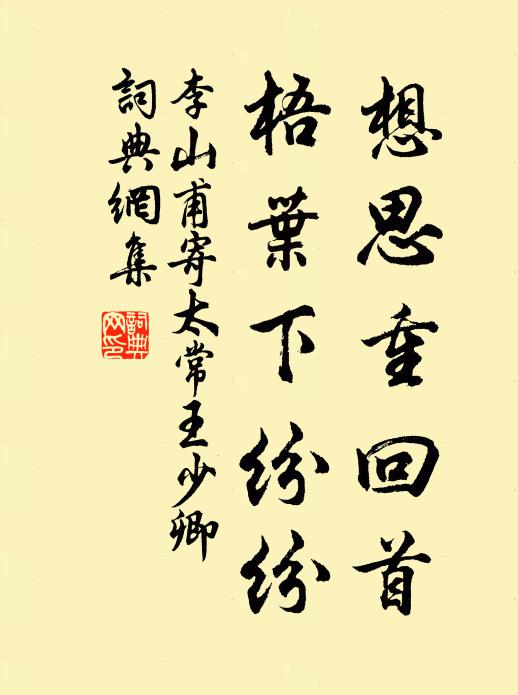 想思重回首
梧葉下紛紛
李山甫寄太常王少卿
詞典網集
詞典网印